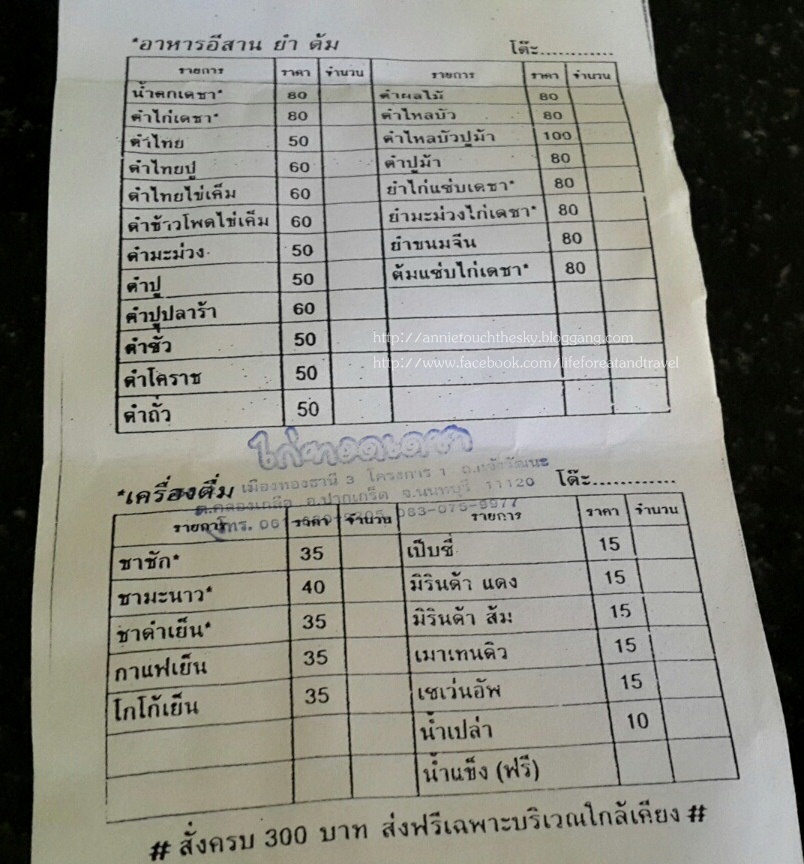 *อาหารอีสาน ยำ ต้ม โต๊ะ............
รายการ ราคา จำนวน รายการ ราคา จำนวน
น้ำตกเดชา* 80 ตำผลไม้ 80
ตำไก่เดชา* 80 ตำไหลบัว 80
ตำไทย 50 ตำไหลบัวปูม้า 100
ตำไทยปู 60 ตำปูม้า 80
ตำไทยไข่เค็ม 60 ยำไก่แซ่บเดชา* 80
ตำข้าวโพดไข่เค็ม 60 ยำมะม่วงไก่เดชา* 80
ตำมะม่วง 50 ยำขนมจีน 80
ตำปู 50 ต้มแซ่บไก่เดชา* 80
ตำปูปลาร้า 60
ตำซั่ว 50
http://annietouchthesky.bloggang.com
ตำโคราช 50
http://www.facebook.com/lifeforeatandtravel
ตำถั่ว 50
ไก่ทอดเดชา
เมืองทองธานี 3 โครงการ 1 ถ.แจ้งวัฒนะ
*เครื่องดื่ม โต๊ะ............
ต.คลองเกลือ อ.ปากเกร็ด จ.นนทบุรี 11120
โทร. 083-075-9977
รายการ ราคา จำนวน รายการ ราคา จำนวน
ชาชัก* 35 เป๊บซี่ 15
ชามะนาว* 40 มิรินด้า แดง 15
ชาดำเย็น* 35 มิรินด้า ส้ม 15
กาแฟเย็น 35 เมาเทนดิว 15
โกโก้เย็น 35 เซเว่นอัพ 15
น้ำเปล่า 10
น้ำแข็ง (ฟรี)
# สั่งครบ 300 บาท ส่งฟรีเฉพาะบริเวณใกล้เคียง #